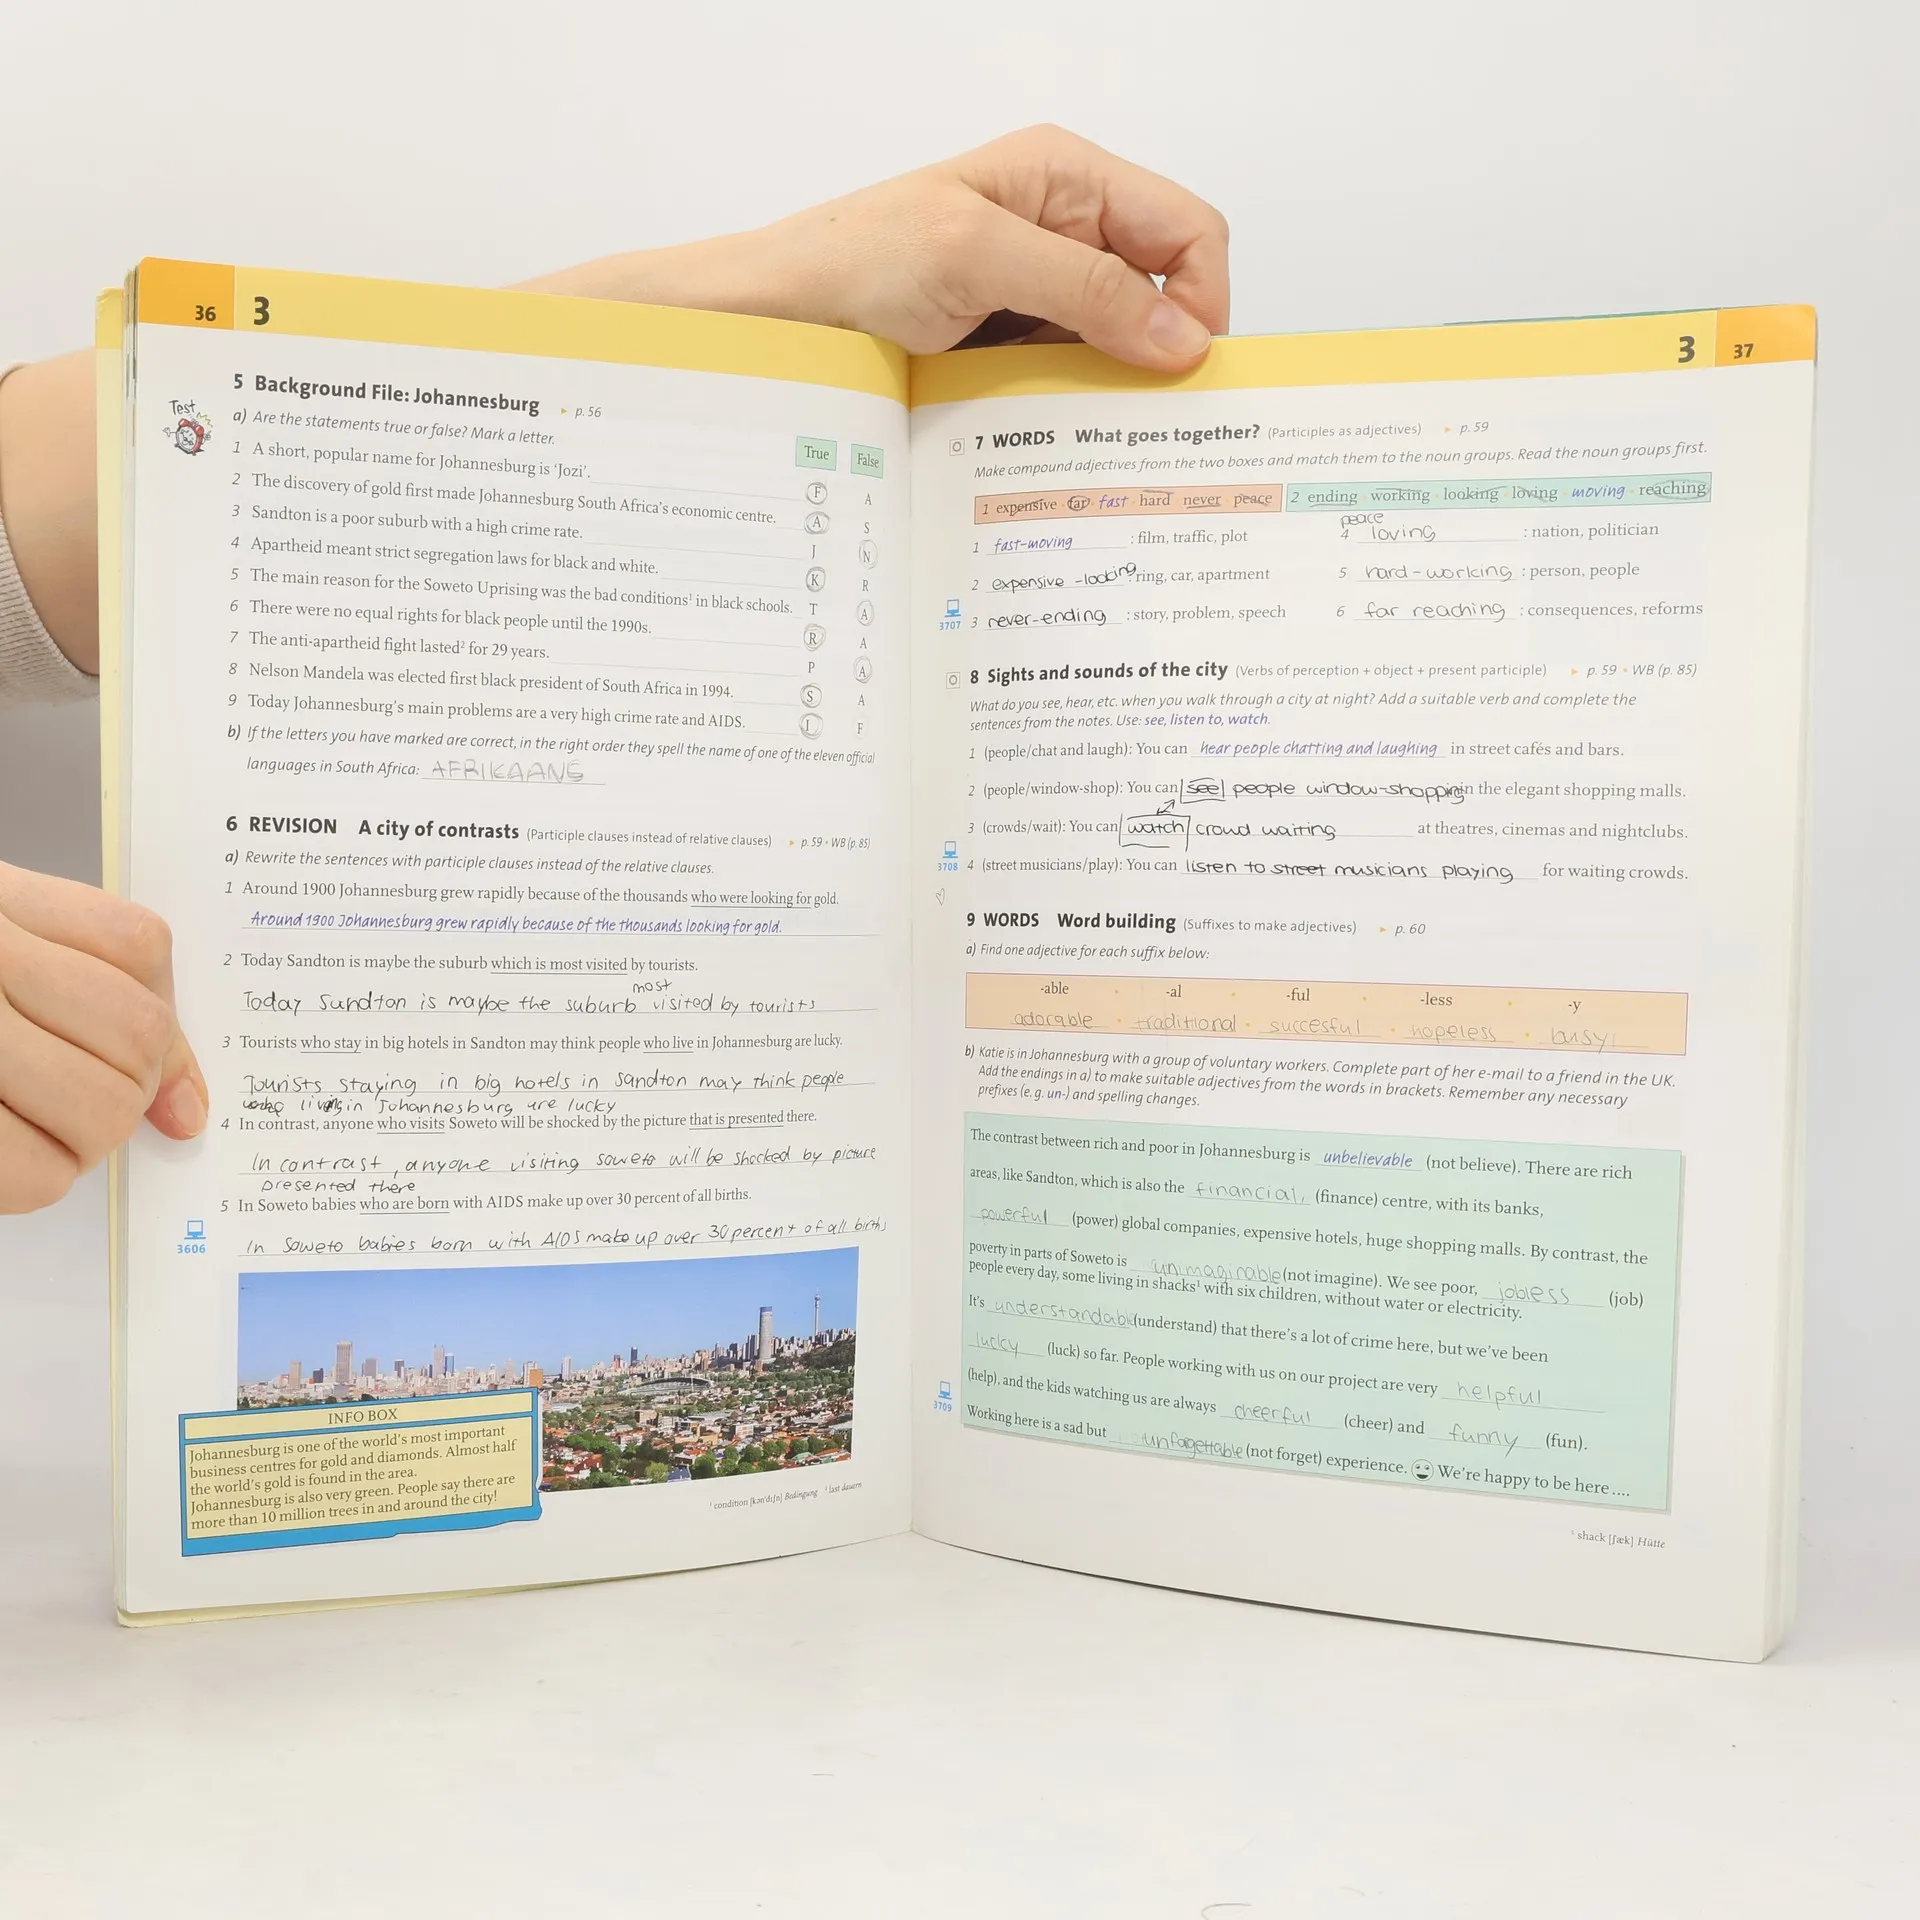 36 3
5 Background File: Johannesburg ▸ p. 56
Test
a) Are the statements true or false? Mark a letter.
True False
1 A short, popular name for Johannesburg is ‘Jozi’. F A
2 The discovery of gold first made Johannesburg South Africa’s economic centre. A S
3 Sandton is a poor suburb with a high crime rate. J N
4 Apartheid meant strict segregation laws for black and white. K R
5 The main reason for the Soweto Uprising was the bad conditions¹ in black schools. T A
6 There were no equal rights for black people until the 1990s. R A
7 The anti-apartheid fight lasted² for 29 years. P A
8 Nelson Mandela was elected first black president of South Africa in 1994. S A
9 Today Johannesburg’s main problems are a very high crime rate and AIDS. I F
b) If the letters you have marked are correct, in the right order they spell the name of one of the eleven official
languages in South Africa: AFRIKAANS
6 REVISION A city of contrasts (Participle clauses instead of relative clauses) ▸ p. 59 • WB (p. 85)
a) Rewrite the sentences with participle clauses instead of the relative clauses.
1 Around 1900 Johannesburg grew rapidly because of the thousands who were looking for gold.
Around 1900 Johannesburg grew rapidly because of the thousands looking for gold.
2 Today Sandton is maybe the suburb which is most visited by tourists.
most
Today Sandton is maybe the suburb visited by tourists
3 Tourists who stay in big hotels in Sandton may think people who live in Johannesburg are lucky.
Tourists staying in big hotels in Sandton may think people
living in Johannesburg are lucky
4 In contrast, anyone who visits Soweto will be shocked by the picture that is presented there.
In contrast, anyone visiting soweto will be shocked by picture
presented there
5 In Soweto babies who are born with AIDS make up over 30 percent of all births.
3606
In Soweto babies born with AIDS make up over 30 percent of all births
INFO BOX
Johannesburg is one of the world’s most important
business centres for gold and diamonds. Almost half
the world’s gold is found in the area.
Johannesburg is also very green. People say there are
more than 10 million trees in and around the city!
¹ condition [kənˈdɪʃn] Bedingung ² last dauern
3 37
7 WORDS What goes together? (Participles as adjectives) ▸ p. 59
Make compound adjectives from the two boxes and match them to the noun groups. Read the noun groups first.
1 expensive · far · fast · hard · never · peace 2 ending · working · looking · loving · moving · reaching
peace
1 fast-moving : film, traffic, plot 4 loving : nation, politician
2 expensive-looking : ring, car, apartment 5 hard-working : person, people
3707 3 never-ending : story, problem, speech 6 far reaching : consequences, reforms
8 Sights and sounds of the city (Verbs of perception + object + present participle) ▸ p. 59 • WB (p. 85)
What do you see, hear, etc. when you walk through a city at night? Add a suitable verb and complete the
sentences from the notes. Use: see, listen to, watch.
1 (people/chat and laugh): You can hear people chatting and laughing in street cafés and bars.
2 (people/window-shop): You can see people window-shopping in the elegant shopping malls.
3 (crowds/wait): You can watch crowd waiting at theatres, cinemas and nightclubs.
3708 4 (street musicians/play): You can listen to street musicians playing for waiting crowds.
9 WORDS Word building (Suffixes to make adjectives) ▸ p. 60
a) Find one adjective for each suffix below:
-able · -al · -ful · -less · -y
adorable · traditional · succesful · hopeless · busy
b) Katie is in Johannesburg with a group of voluntary workers. Complete part of her e-mail to a friend in the UK.
Add the endings in a) to make suitable adjectives from the words in brackets. Remember any necessary
prefixes (e. g. un-) and spelling changes.
The contrast between rich and poor in Johannesburg is unbelievable (not believe). There are rich
areas, like Sandton, which is also the financial, (finance) centre, with its banks,
powerful (power) global companies, expensive hotels, huge shopping malls. By contrast, the
poverty in parts of Soweto is unimaginable (not imagine). We see poor, jobless (job)
people every day, some living in shacks¹ with six children, without water or electricity.
It’s understandabl (understand) that there’s a lot of crime here, but we’ve been
lucky (luck) so far. People working with us on our project are very helpful
3709
(help), and the kids watching us are always cheerful (cheer) and funny (fun).
Working here is a sad but unforgettable (not forget) experience. We’re happy to be here ....
¹ shack [ʃæk] Hütte